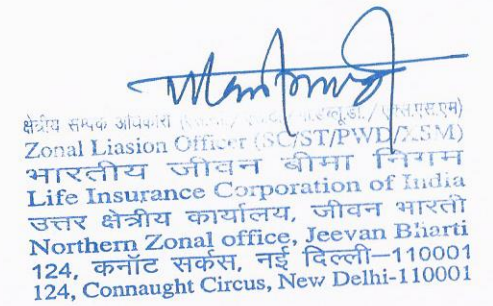 क्षेत्रीय सम्पर्क अधिकारी
Zonal Liasion Officer (SC/ST/PWD/XSM)
भारतीय जीवन बीमा निगम
Life Insurance Corporation of India
उत्तर क्षेत्रीय कार्यालय, जीवन भारती
Northern Zonal office, Jeevan Bharti
124, कनॉट सर्कस, नई दिल्ली–110001
124, Connaught Circus, New Delhi-110001